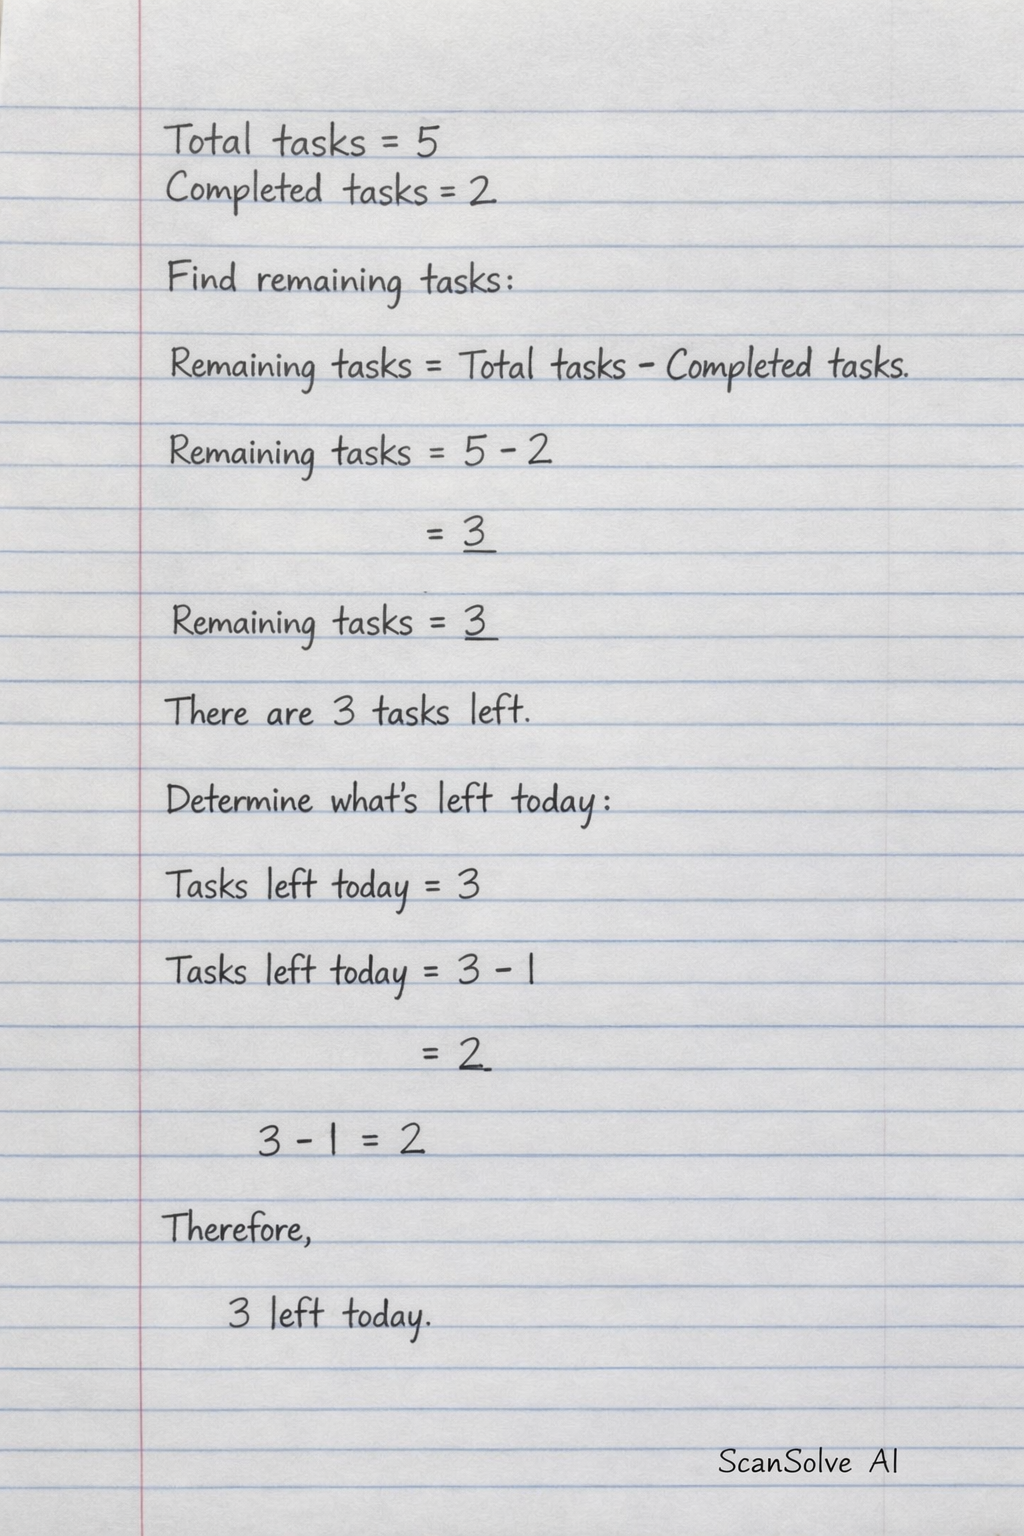 Total tasks = 5
Completed tasks = 2
Find remaining tasks:
Remaining tasks = Total tasks - Completed tasks.
Remaining tasks = 5 - 2
= 3
Remaining tasks = 3
There are 3 tasks left.
Determine what's left today:
Tasks left today = 3
Tasks left today = 3 - 1
= 2
3 - 1 = 2
Therefore,
3 left today.
ScanSolve AI